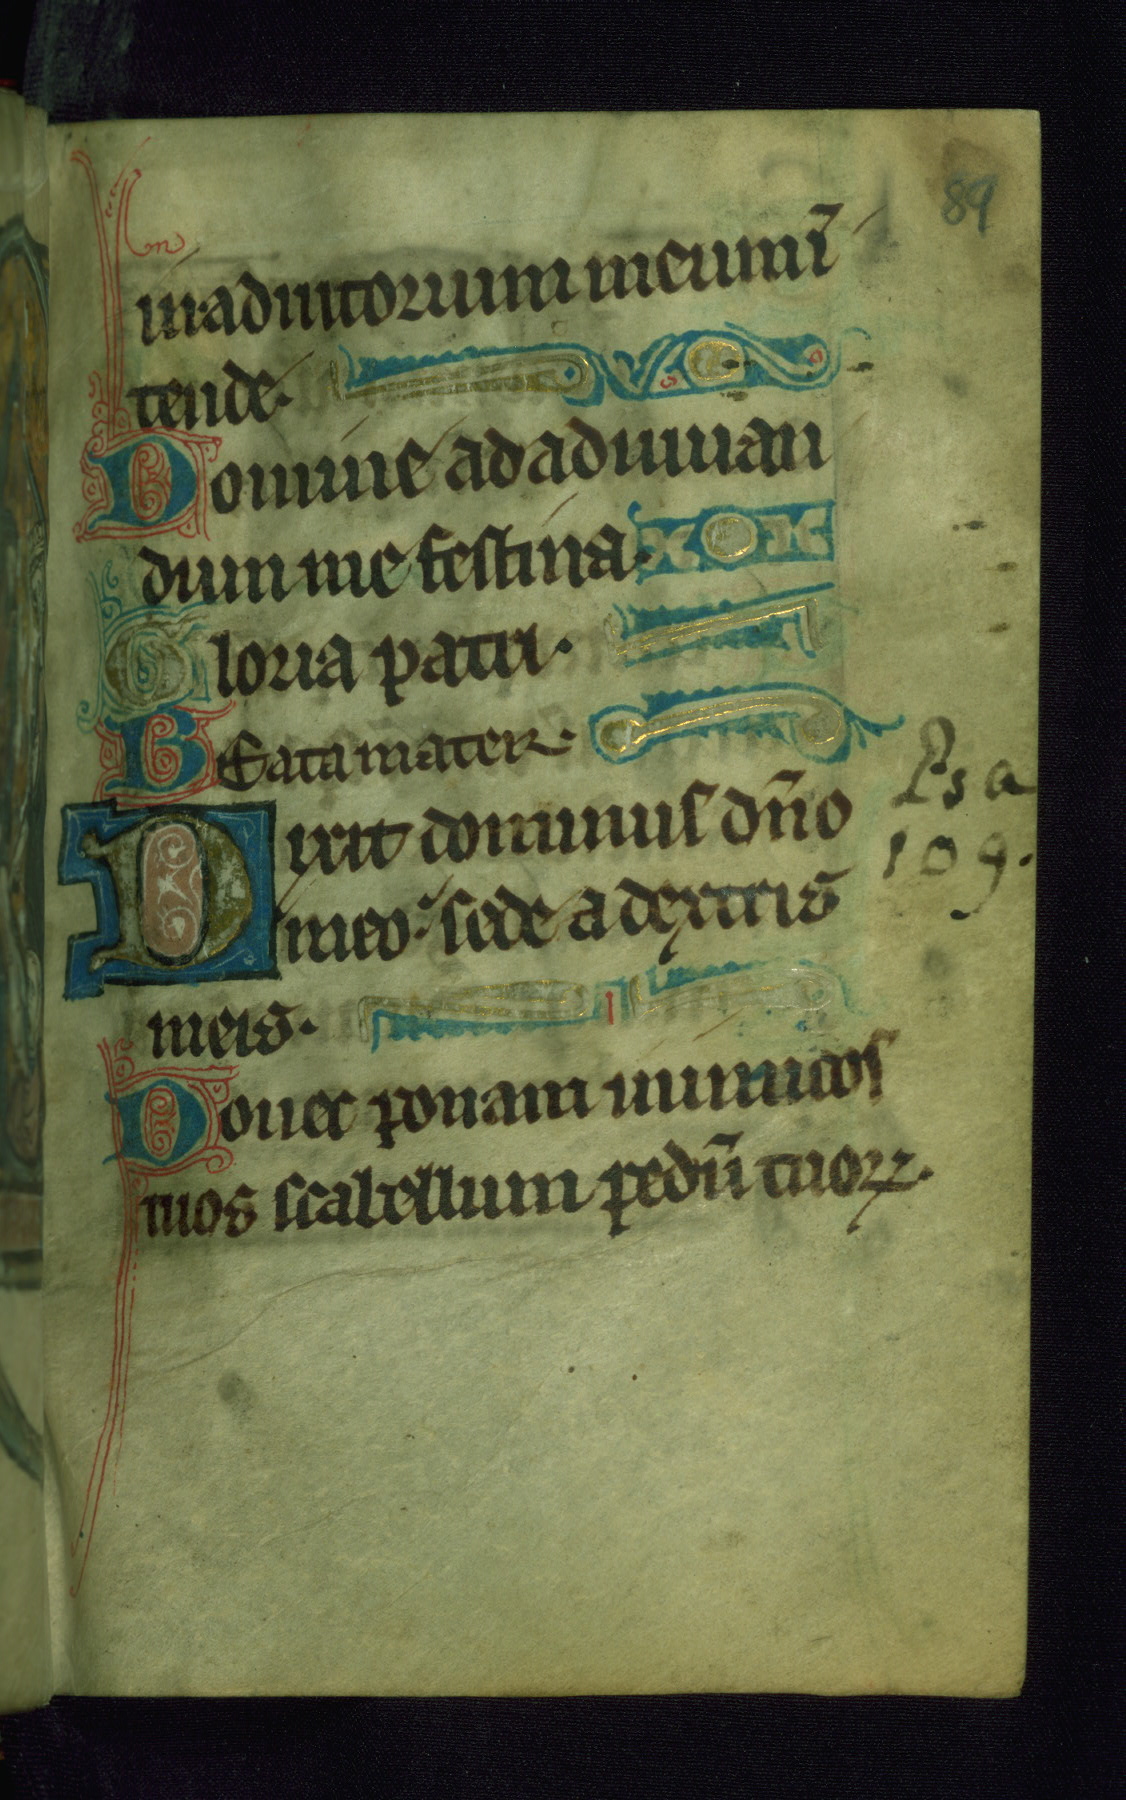 89
in adiutorium meum ī
tende.
Domine ad adiuuan
dum me festina.
Gloria patri.
Beata mater.
Dixit dominus dn̄o
meo sede a dextris
meis.
Psa
109.
Donec ponam inimicos
tuos scabellum pedū tuoꝝ.